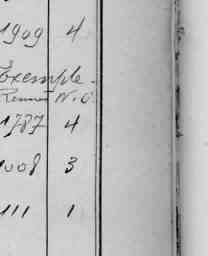 1909 4
Exemple.
N. O.
1787 4
1008 3
111 1